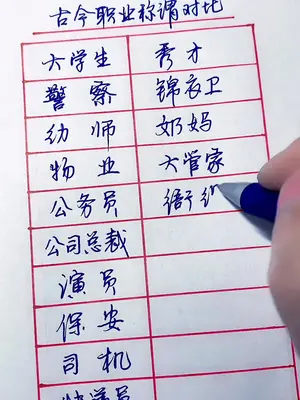 古今职业称谓对比
大学生 秀才
警察 锦衣卫
幼师 奶妈
物业 大管家
公务员 衙
公司总裁
演员
保安
司机
快递员